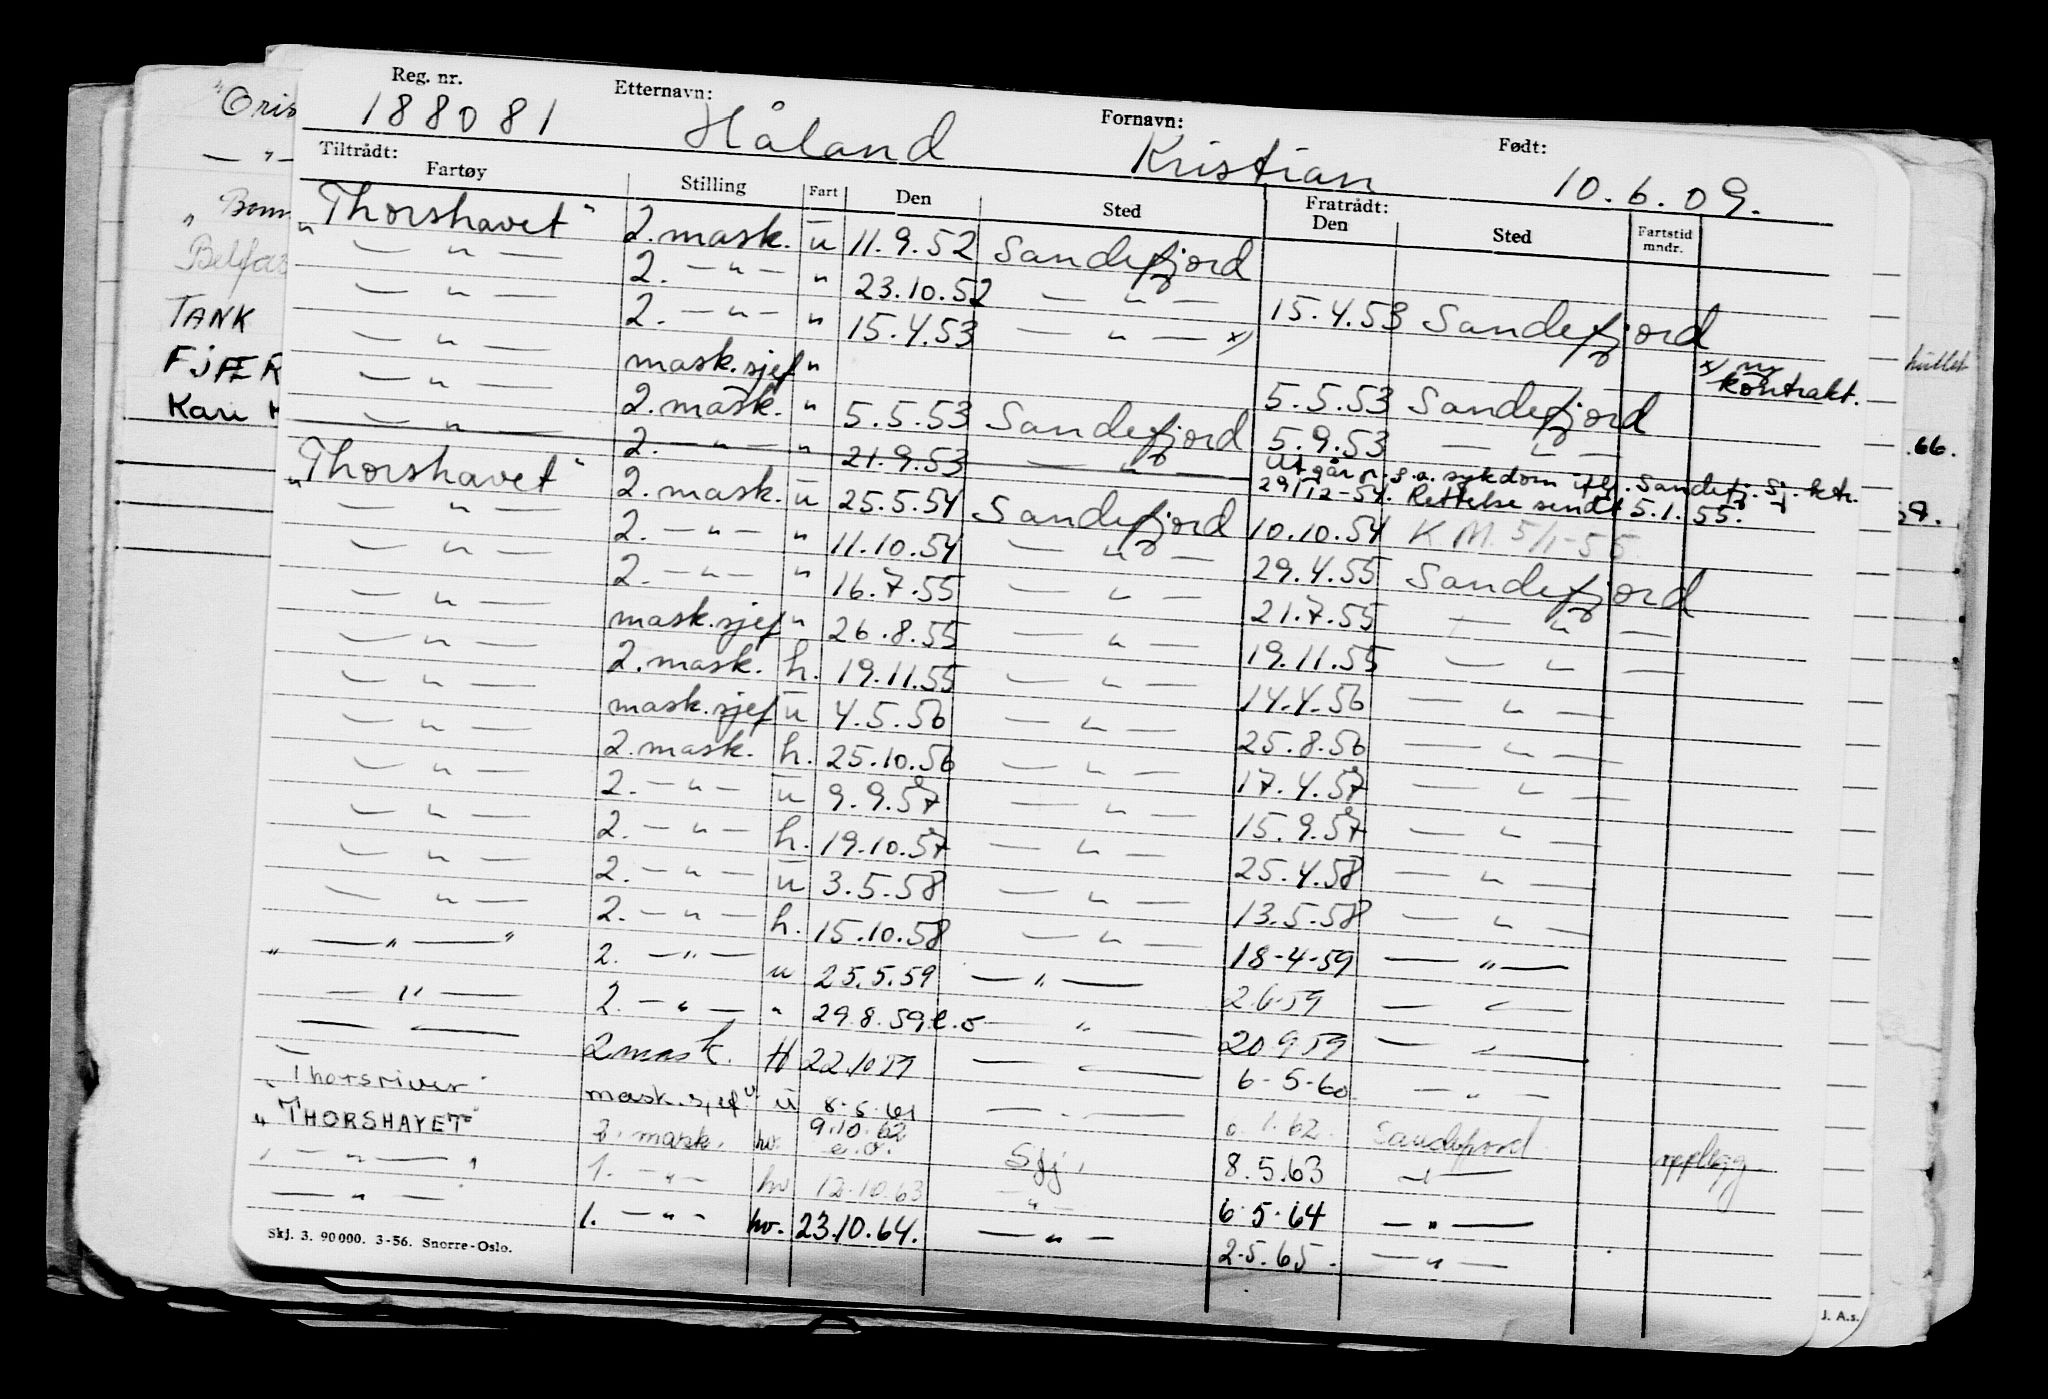 Reg. nr. Etternavn: Fornavn: Født:
188081 Håland Kristian 10.6.09.
Tiltrådt: Fratrådt:
Fartøy Stilling Fart Den Sted Den Sted Fartstid mndr.
"Thorshavet" 2. mask. ū 11.9.52 Sandefjord
— " — 2. — " — " 23.10.52 — " — 15.4.53 Sandefjord
— " — 2. — " — " 15.4.53 — " — x) x) ny kontrakt.
— " — mask.sjef " 5.5.53 Sandefjord
— " — 2. mask. " 5.5.53 Sandefjord 5.9.53 — " —
— " — 2. — " — " 21.9.53 — " — Utgår p. g. a. sykdom iflg. Sandefj. Sj. ktr. 29/12-54. Rettelse sendt 5.1.55.
"Thorshavet" 2. mask. ū 25.5.54 Sandefjord 10.10.54 K M. 5/1-55
— " — 2. — " — " 11.10.54 — " — 29.4.55 Sandefjord
— " — 2. — " — " 16.7.55 — " — 21.7.55 — " —
— " — mask.sjef " 26.8.55 — " — 19.11.55 — " —
— " — 2. mask. h. 19.11.55 — " — 14.4.56 — " —
— " — mask.sjef ū 4.5.56 — " — 25.8.56 — " —
— " — 2. mask. h. 25.10.56 — " — 17.4.57 — " —
— " — 2. — " — ū 9.9.57 — " — 15.9.57 — " —
— " — 2. — " — h. 19.10.57 — " — 25.4.58 — " —
— " — 2. — " — ū 3.5.58 — " — 13.5.58 — " —
— " — 2. — " — h. 15.10.58 — " — 18-4-59 — " —
" — " — " 2. — " — u 25.5.59 — " — 2.6.59 — " —
— " — 2. — " — " 29.8.59 e.o — " — 20 9 59 — " —
— — 2 mask. H 22.10 59 — — 6-5-60 — " —
"Thorsriver" mask.sjef ū 8.5.61 — " — 1.62. Sandefjord opplegg
"THORSHAVET" 2. mask. hv. 9.10.62 e.o. Sfj. 8.5.63 — " —
" — " — " 1. — " — hv 12.10.63 — " — 6.5.64 — " —
— " — 1. — " — hv. 23.10.64. — " — 2.5.65. — " —
Skj. 3. 90000. 3-56. Snorre-Oslo.
TANK
Kari
.66.
J. A.s.